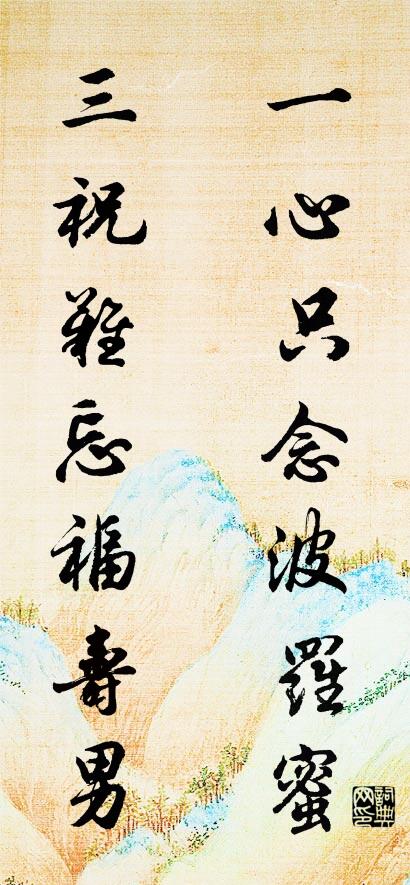 一心只念波羅蜜
三祝難忘福壽男